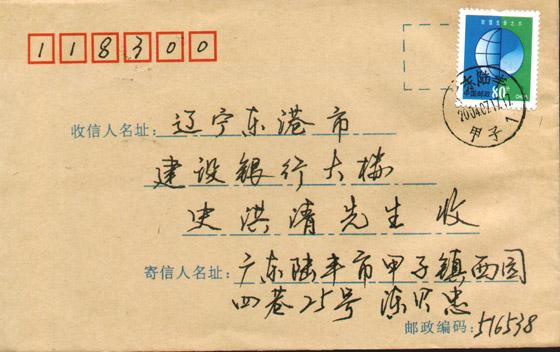 118300
80分
中国邮政
CHINA
广东陆丰
2004.07.17.17
甲子
收信人名址：辽宁东港市
建设银行大楼
史洪清先生 收
寄信人名址：广东陆丰市甲子镇西园
四巷25号 陈贝忠
邮政编码：516538